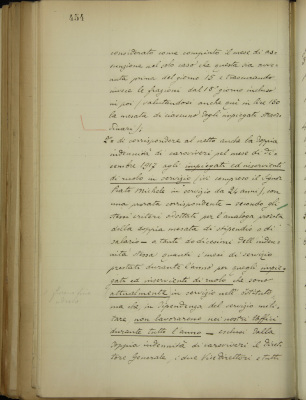 454
considerato come compiuto il mese di as-
sunzione nel solo caso che questa sia avve-
nuta prima del giorno 15 e trascurando
invece le frazioni dal 15° giorno incluso
in poi / valutandosi anche qui in lire 150
la mesata di ciascuno degli impiegati straor-
dinari /;
2° di corrispondere al netto anche la doppia
indennità di caroviveri pel mese di Di-
cembre 1917 agli impiegati ed inservienti
di ruolo in servizio / ivi compreso il Signor
Prato Michele in servizio da 24 anni /, con
una parata corrispondente - secondo gli
stessi criteri adottati per l'analoga
della doppia mesata di stipendio o di
salario - a tanti dodicesimi dell'inden-
nità stessa quanti i mesi di servizio
prestati durante l'anno per quegli impie-
gati ed inservienti di ruolo che sono
attualmente in servizio nell'Istituto
ma che in dipendenza del servizio mili-
tare non lavorarono nei nostri Uffici
durante tutto l'anno - esclusi dalla
doppia indennità di caroviveri il Diret-
tore Generale, i due Vice Direttori e tutti